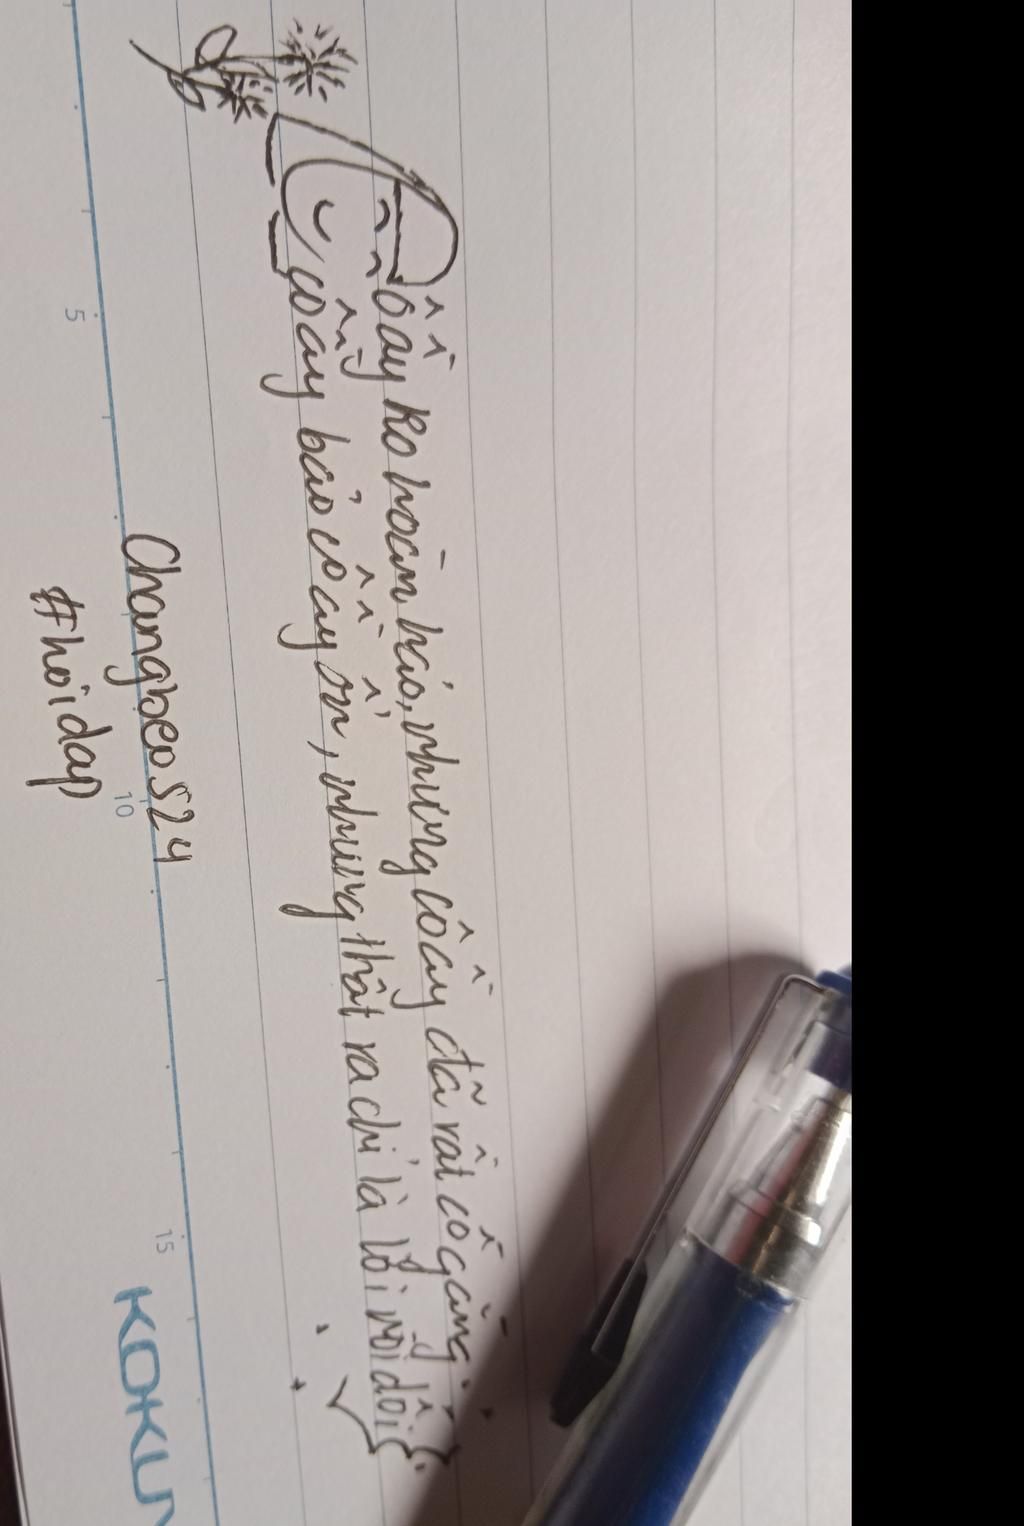 Cô ấy ko hoàn hảo, nhưng cô ấy đã rất cố gắng
Cô ấy bảo cô ấy ổn, nhưng thật ra chỉ là lời nói dối
Changbeo524
#hoidap
5
10
15
KOKUY